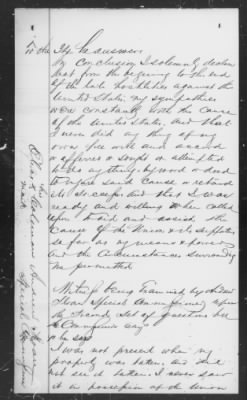 To the
In conclusion I solemnly declare
that from the beginning to the end
of the late hostilities against the
United States, my sympathies
were constantly with the cause
of the United States, and that
I never did any thing of my
own free will and accord
& offered or sought or attempted
to do any thing by word or deed
to injure said Cause or retard
its success and that I was
ready and willing when called
upon to aid and assist the
Cause of the Union & its supporters
so far as my means & power
and the circumstances surrounding
me permitted
being Examined by
Special Commissioner upon
the Second Set of questions
he says
I was not present when my
property was taken, and did
not see it taken. I never saw
it in possession of the Union
his
mark
Special Commissioner